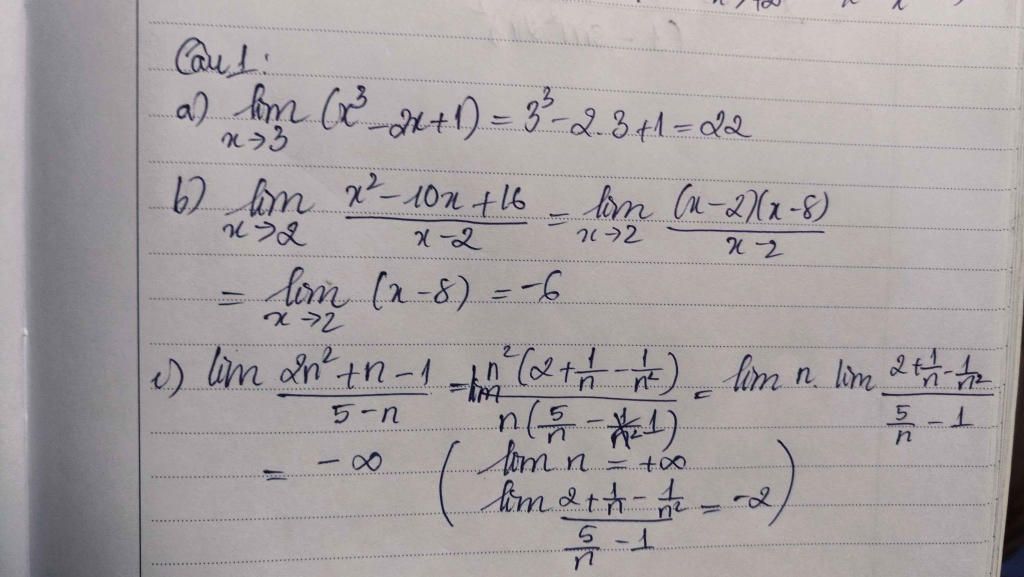 Câu 1:
a) lim (x³ - 2x + 1) = 3³ - 2.3 + 1 = 22
x→3
b) lim x² - 10x + 16 / x - 2 = lim (x - 2)(x - 8) / x - 2
x→2 x→2
= lim (x - 8) = -6
x→2
c) lim 2n² + n - 1 / 5 - n = lim n² (2 + 1/n - 1/n²) / n (5/n - 1) = lim n. lim 2 + 1/n - 1/n² / 5/n - 1
= -∞ ( lim n = +∞
lim 2 + 1/n - 1/n² / 5/n - 1 = -2 )